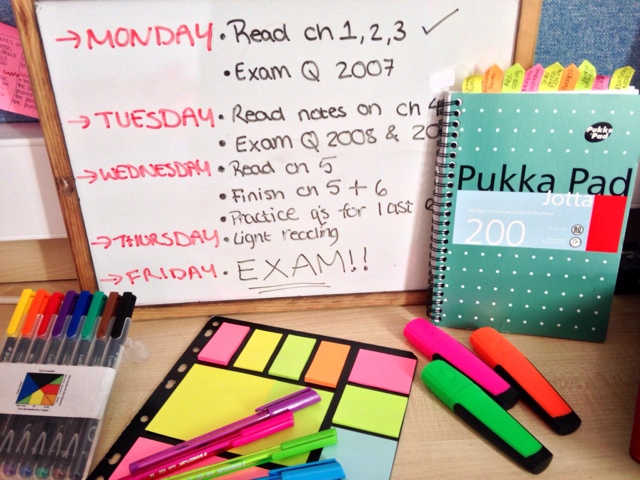 → MONDAY • Read ch 1,2,3 ✓
• Exam Q 2007
→ TUESDAY • Read notes on ch 4
• Exam Q 2008 & 20
→ WEDNESDAY • Read ch 5
• Finish ch 5 + 6
• Practice q's for last
→ THURSDAY • Light reading
→ FRIDAY • EXAM!!
Pukka Pad
Pukka Pad
Jotta
200
STAEDTLER